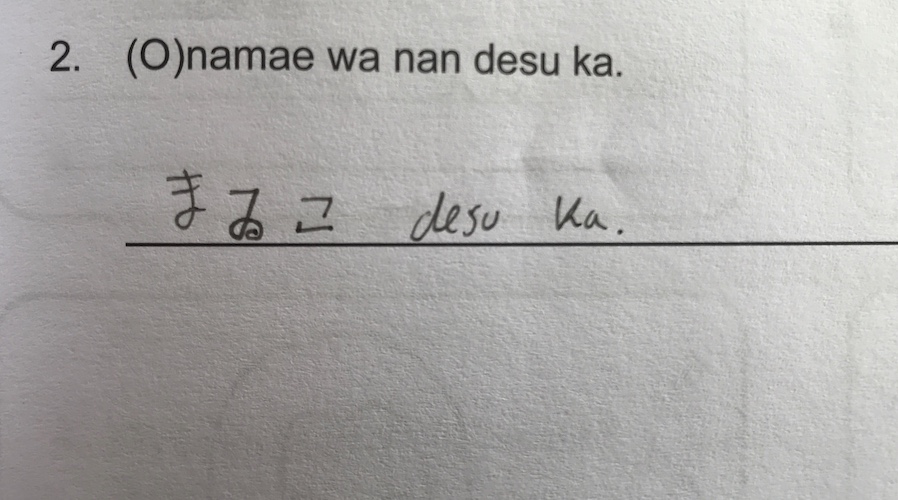 2. (O)namae wa nan desu ka.
まるコ desu ka.